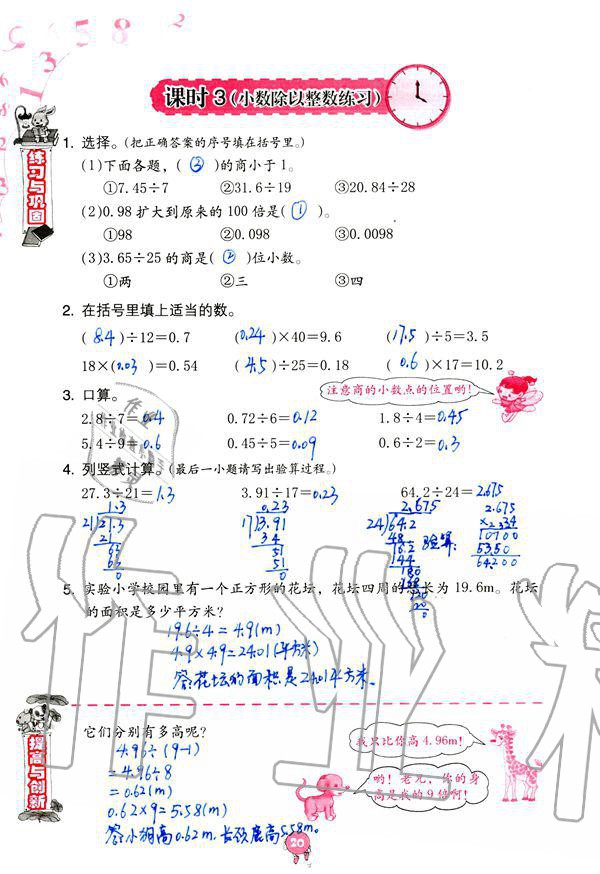 课时 3（小数除以整数练习）
练习与巩固
1. 选择。（把正确答案的序号填在括号里。）
(1)下面各题，( ③ )的商小于 1。
①7.45÷7 ②31.6÷19 ③20.84÷28
(2)0.98 扩大到原来的 100 倍是( ① )。
①98 ②0.098 ③0.0098
(3)3.65÷25 的商是( ② )位小数。
①两 ②三 ③四
2. 在括号里填上适当的数。
( 8.4 )÷12=0.7 ( 0.24 )×40=9.6 ( 17.5 )÷5=3.5
18×( 0.03 )=0.54 ( 4.5 )÷25=0.18 ( 0.6 )×17=10.2
3. 口算。
注意商的小数点的位置哟！
2.8÷7=0.4 0.72÷6=0.12 1.8÷4=0.45
5.4÷9=0.6 0.45÷5=0.09 0.6÷2=0.3
4. 列竖式计算。（最后一小题请写出验算过程。）
27.3÷21=1.3 3.91÷17=0.23 64.2÷24=2.675
1.3 0.23 2.675 2.675
21 27.3 17 3.91 24 64.2
21 34 48 验算: 10700
63 51 16.2 5350
63 51 144 64.200
0 0 180
120
0
5. 实验小学校园里有一个正方形的花坛，花坛四周的总长为 19.6m。花坛
的面积是多少平方米？
19.6÷4=4.9(m)
4.9×4.9=24.01(平方米)
答:花坛的面积是24.01平方米。
提高与创新
它们分别有多高呢？
我只比你高 4.96m！
4.96÷(9-1)
=4.96÷8
=0.62(m)
哟！老兄，你的身
高是我的 9 倍啊！
0.62×9=5.58(m)
答:小狗高0.62m,长颈鹿高5.58m。
20
作业